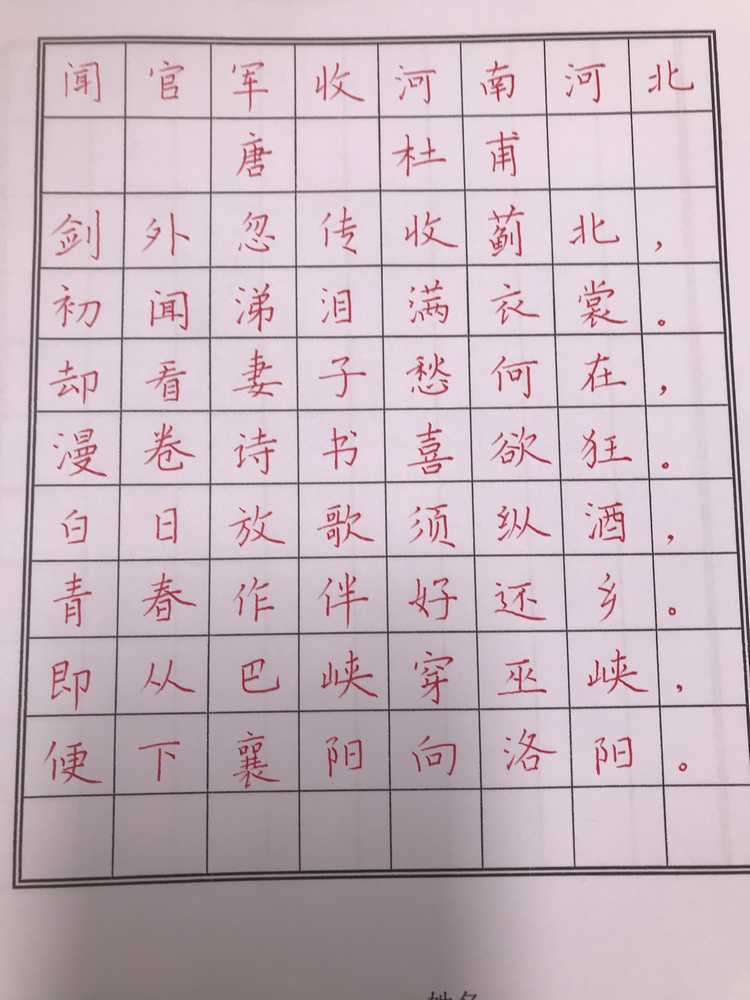 闻官军收河南河北
唐 杜甫
剑外忽传收蓟北，
初闻涕泪满衣裳。
却看妻子愁何在，
漫卷诗书喜欲狂。
白日放歌须纵酒，
青春作伴好还乡。
即从巴峡穿巫峡，
便下襄阳向洛阳。